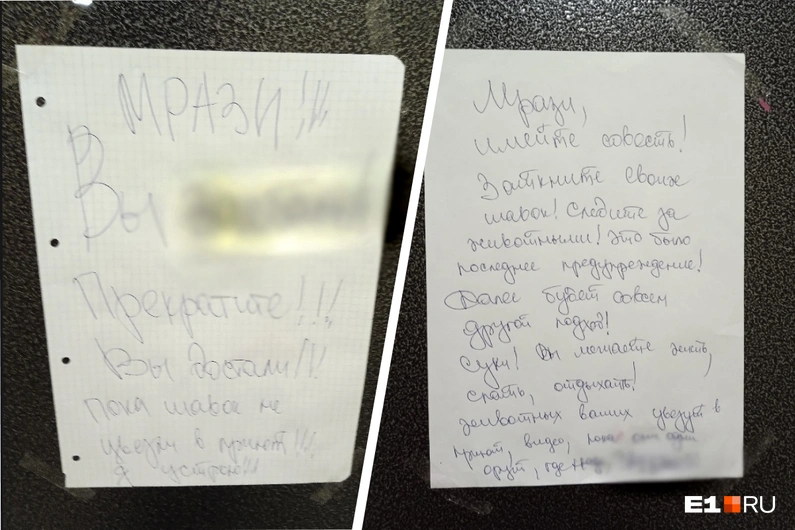 МРАЗИ!!!
В
Вы
Прекратите!!!
Вы достали!!!
пока шавок не
увезли в приют!!!
я устрою!!!
Мрази,
имейте совесть!
Заткните своих
шавок! Следите за
животными! Это было
последнее предупреждение!
Далее будет совсем
другой подход!
Суки! Вы мешаете жить,
спать, отдыхать!
животных ваших увезут в
приют, видео, пока они
орут, где
E1.RU